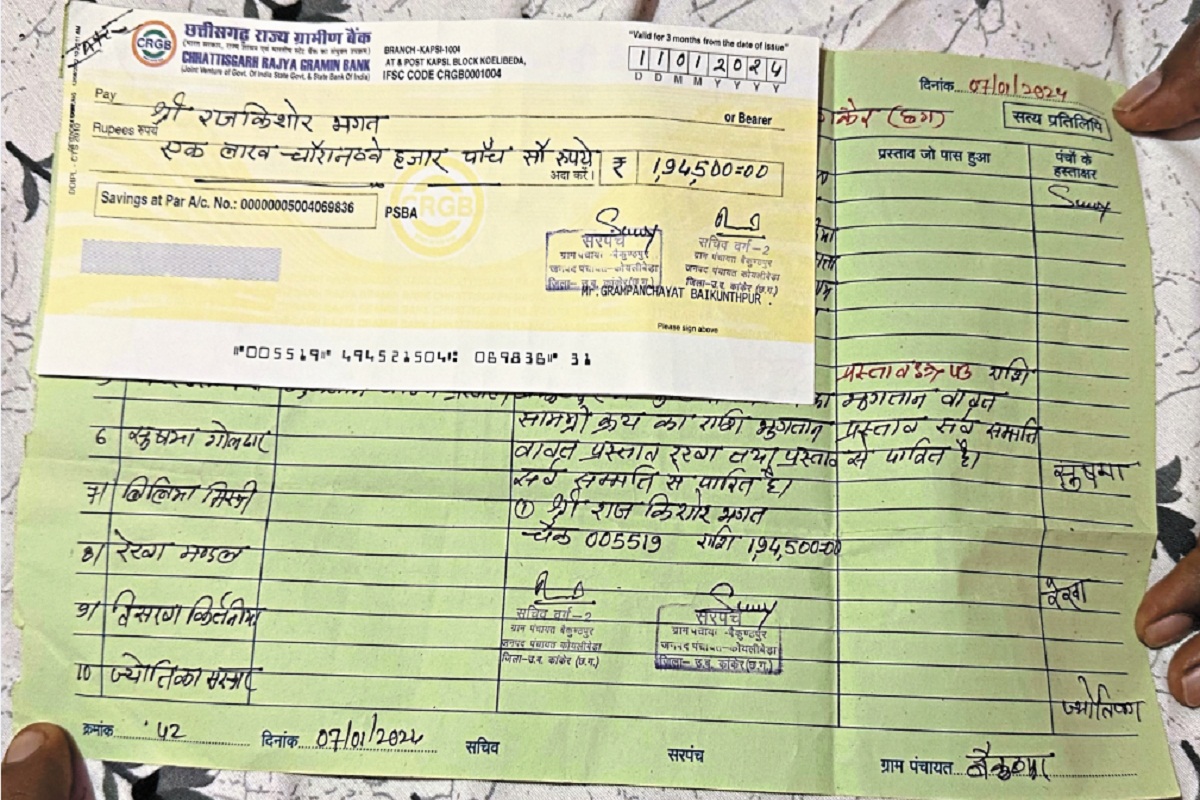 छत्तीसगढ़ राज्य ग्रामीण बैंक
CRGB
CHHATTISGARH RAJYA GRAMIN BANK
(Joint Venture of Govt. Of India State Govt. & State Bank Of India)
BRANCH -KAPSI-1004
AT & POST KAPSI, BLOCK KOELIBEDA,
IFSC CODE CRGB0001004
"Valid for 3 months from the date of issue"
11012024
D D M M Y Y Y Y
Pay श्री राजकिशोर भगत
or Bearer
Rupees रुपये एक लाख चौरानव्वे हजार पाँच सौ रुपये
अदा करें।
₹ 1,94,500=00
Savings at Par A/c. No.: 00000005004069836
PSBA
CRGB
सरपंच
ग्राम पंचायत -बैकुण्ठपुर
जनपद पंचायत-कोयलीबेड़ा
जिला- उ.ब. कांकेर(छ.ग.)
सचिव वर्ग-2
ग्राम पंचायत बैकुण्ठपुर
जनपद पंचायत कोयलीबेड़ा
जिला-उ.ब. कांकेर (छ.ग.)
Mr. GRAMPANCHAYAT BAIKUNTHPUR .
Please sign above
"005519" 494521504: 069836" 31
दिनांक 07/01/2024
कांकेर (छग)
सत्य प्रतिलिपि
प्रस्ताव जो पास हुआ
पंचों के
हस्ताक्षर
राशि
भुगतान बावत
सामग्री क्रय का राशि भुगतान
प्रस्ताव सर्व सम्मति
बावत प्रस्ताव रखा तथा प्रस्ताव
से पारित है।
सर्व सम्मति से पारित है।
6 सुषमा गोलदार
सुषमा
7)
① श्री राज किशोर भगत
चैक 005519 राशि 1,94,500=00
8) रेखा मण्डल
रेखा
9)
सचिव वर्ग-2
ग्राम पंचायत बैकुण्ठपुर
जनपद पंचायत-कोयलीबेड़ा
जिला-उ.ब. कांकेर (छ.ग.)
सरपंच
ग्राम पंचायत -बैकुण्ठपुर
जनपद पंचायत-कोयलीबेड़ा
जिला- उ.ब. कांकेर(छ.ग.)
10 ज्योतिका सरकार
ज्योतिका
क्रमांक 42
दिनांक 07/01/2024
सचिव
सरपंच
ग्राम पंचायत बैकुण्ठपुर